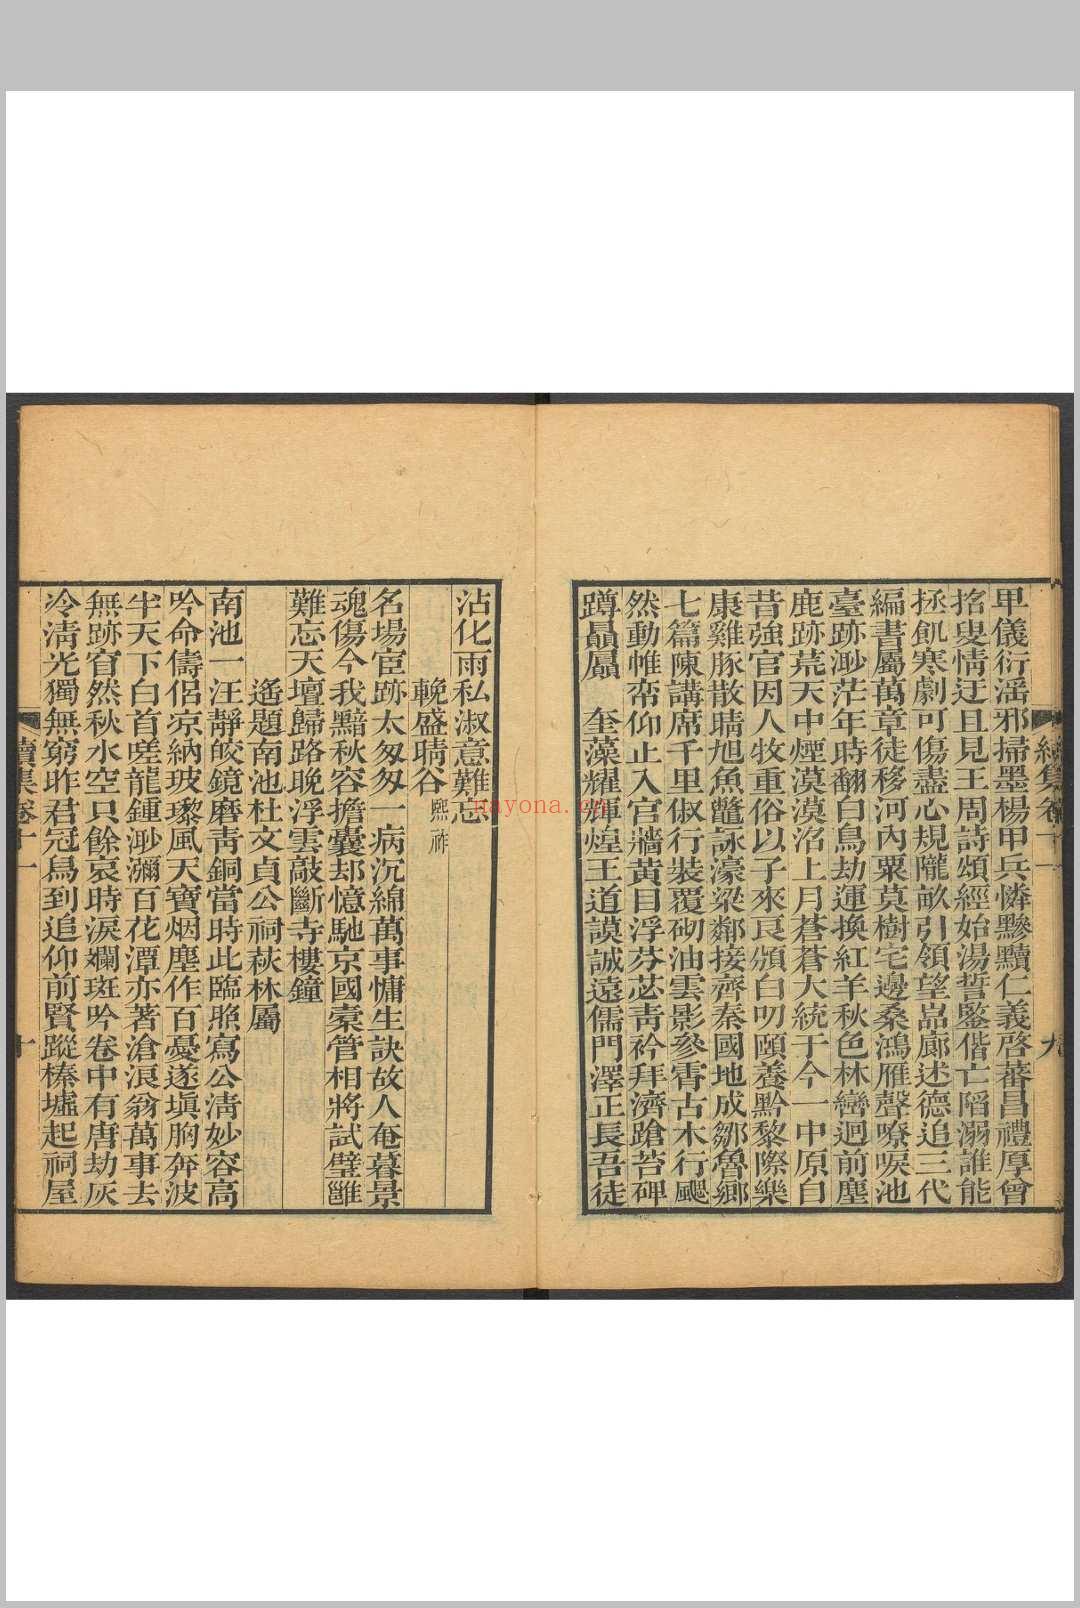 甲儀衍滛邪掃墨楊甲兵憐黲黷仁義啓蕃昌禮厚曾
捨叟情迂且見王周詩頌經始湯誓鑒偕亡陷溺誰能
拯飢寒劇可傷盡心規隴畝引領望嵓廊述德追三代
編書屬萬章徒移河內粟莫樹宅邊桑鴻雁聲嘹唳池
臺跡渺茫年時翻白鳥劫運換紅羊秋色林巒迥前塵
鹿跡荒天中煙漠漠洛上月蒼蒼大統于今一中原自
昔強官因人牧重俗以子來良頒白叨頤養黔黎際樂
康雞豚散晴旭魚鼈詠濠梁鄰接齊秦國地成鄒魯鄉
七篇陳講席千里俶行裝覆砌油雲影參霄古木行颸
然動帷帟仰止入宮牆黃目浮芬苾靑衿拜濟蹌苔碑
蹲贔屭　奎藻耀輝煌王道謨誠遠儒門澤正長吾徒
續集卷十一
九
沾化雨私淑意難忘
輓盛晴谷熙祚
名場宦跡太匆匆一病沉綿萬事慵生訣故人奄暮景
魂傷今我黯秋容擔囊却憶馳京國橐管相將試璧雝
難忘天壇歸路晚浮雲敲斷寺樓鐘
遙題南池杜文貞公祠萩林屬
南池一汪靜皎鏡磨靑銅當時此臨照寫公淸妙容高
吟命儔侶凉納玻瓈風天寶烟塵作百憂遂塡胸奔波
半天下白首嗟龍鍾渺瀰百花潭亦著滄浪翁萬事去
無跡窅然秋水空只餘哀時淚斕斑吟卷中有唐劫灰
冷淸光獨無窮昨君冠鳥到追仰前賢蹤榛墟起祠屋
續集卷十一
十
nayona.cn